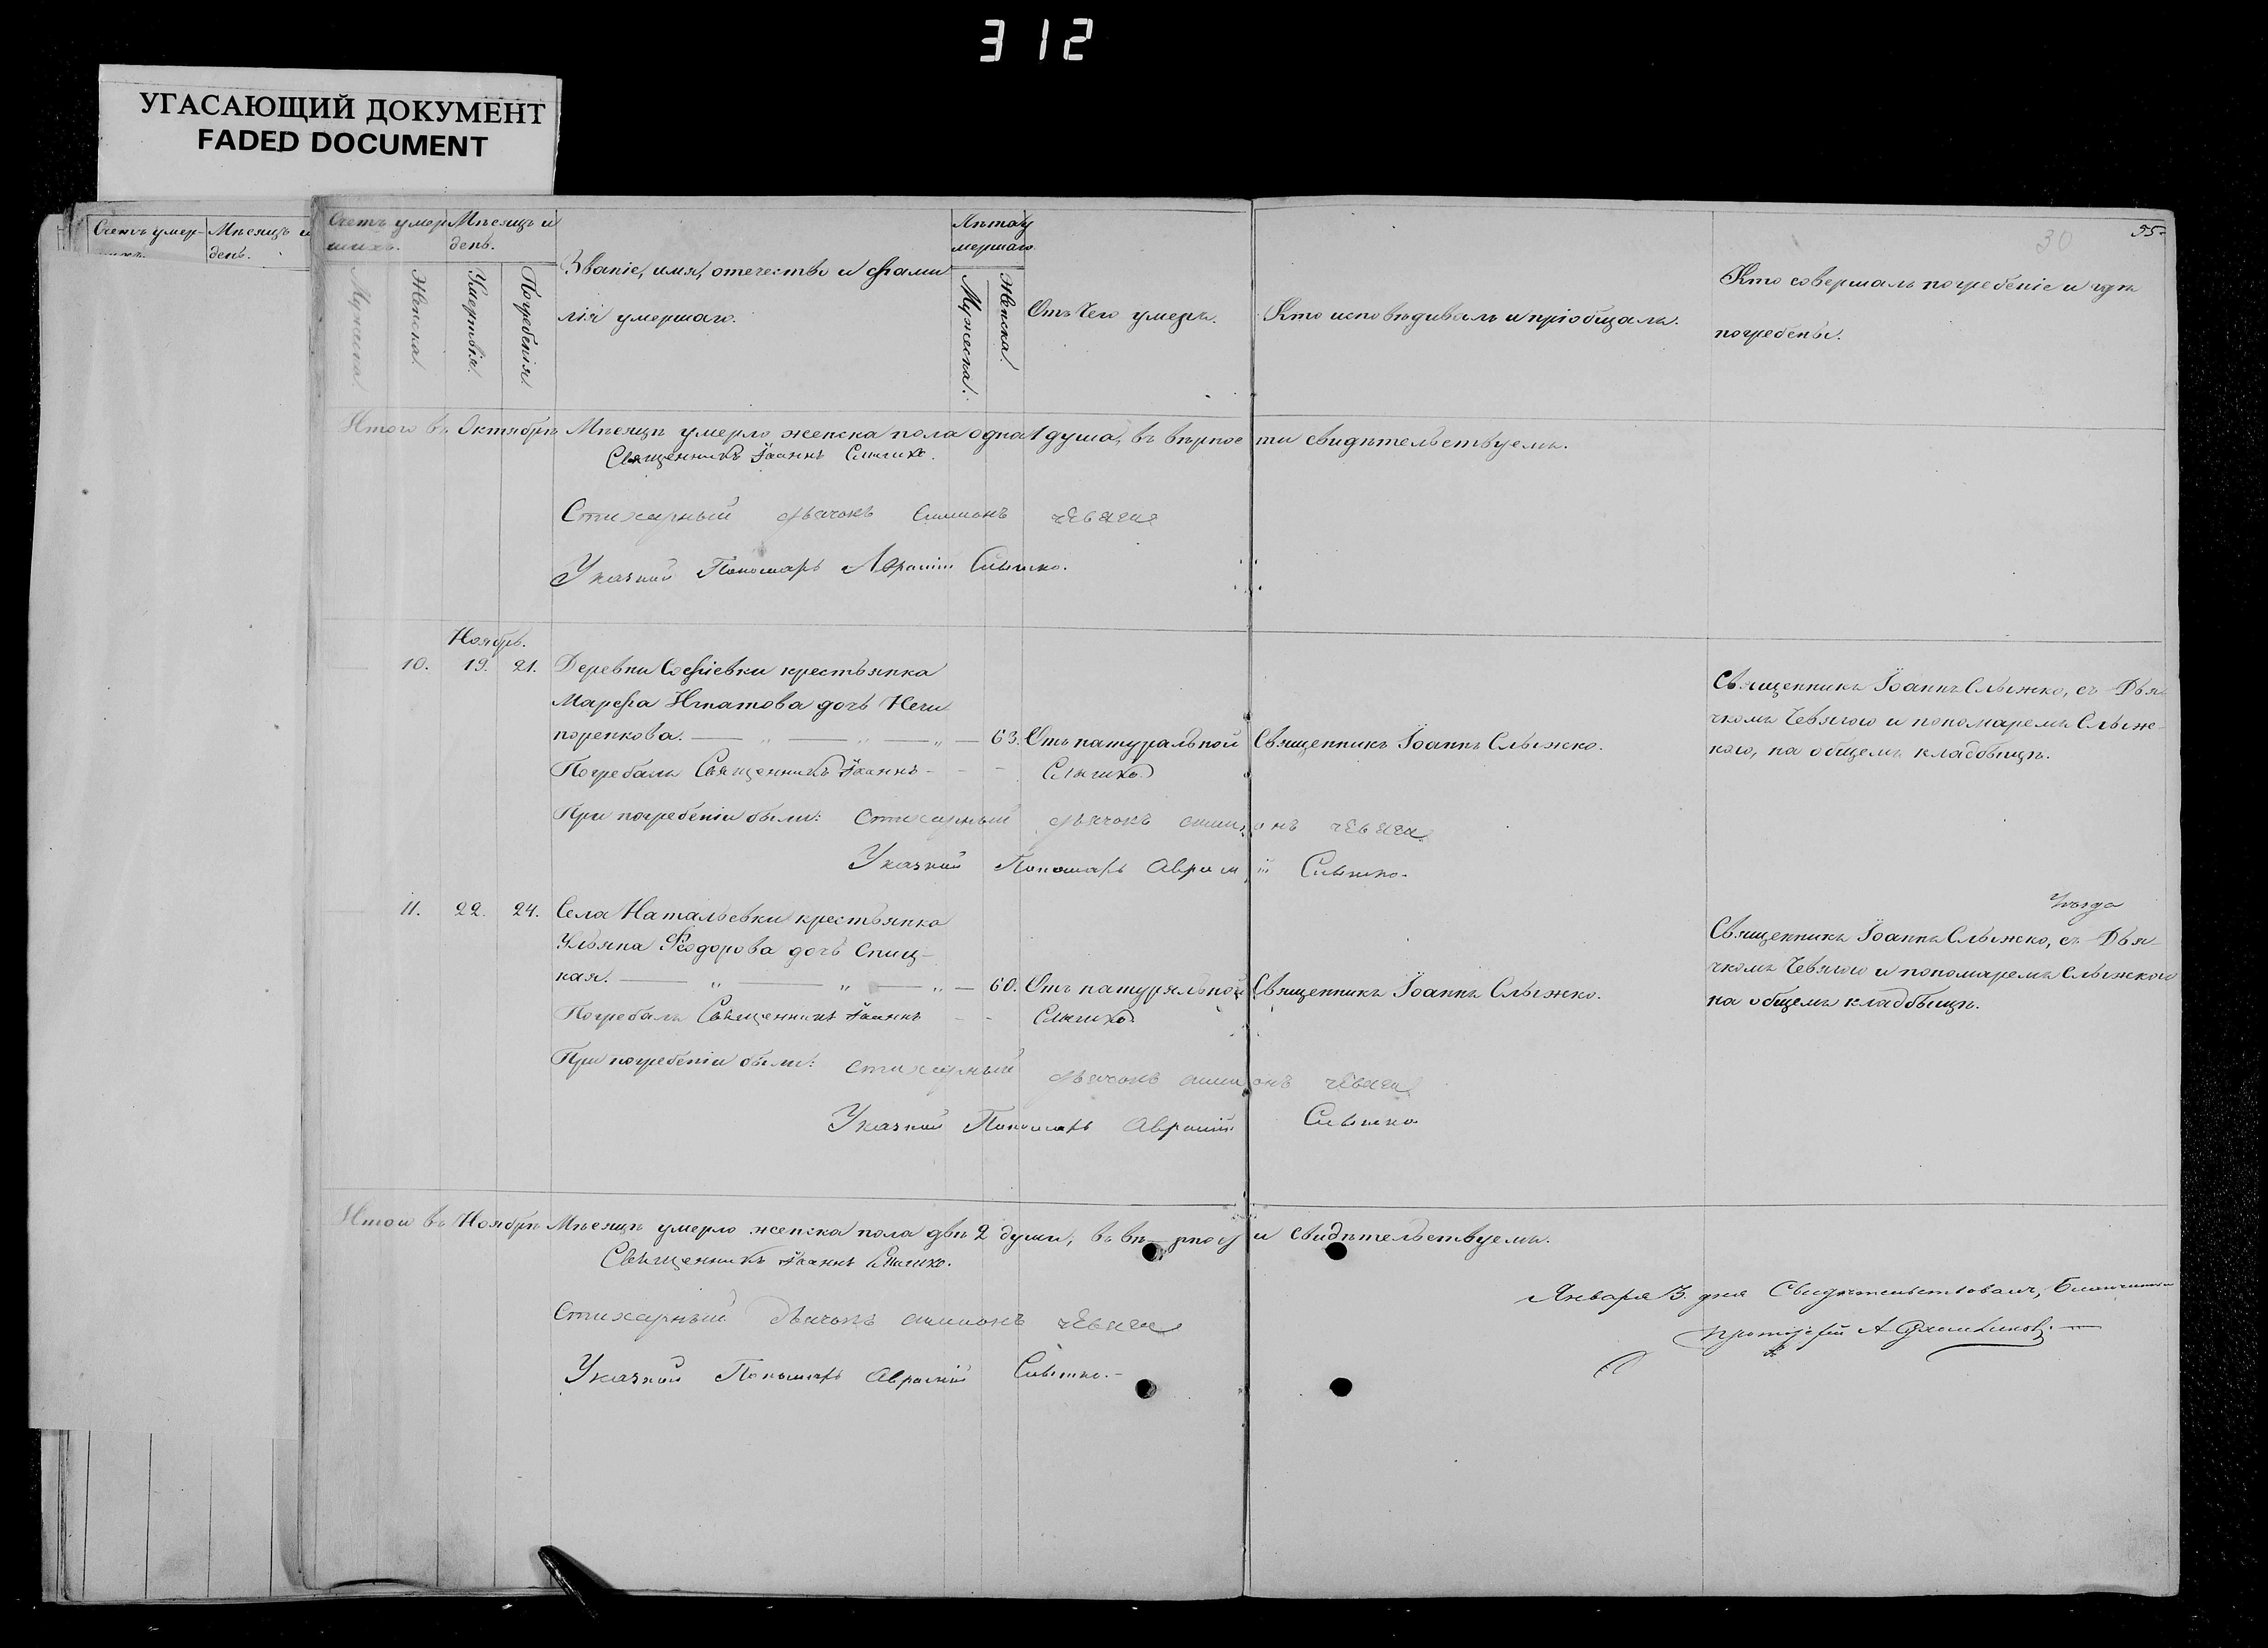 312
УГАСАЮЩИЙ ДОКУМЕНТ
FADED DOCUMENT
Счетъ умер-
шихъ.
Мѣсяцъ и
день.
Счетъ умер
шихъ.
Мѣсяцъ и
день.
Мужеска.
Женска.
Умертвія.
Погребенія.
Званіе, имя, отечество и фами
лія умершаго.
Лѣта у
мершаго.
Мужеска.
Женска.
Отъ чего умеръ.
Кто исповѣдивалъ и пріобщалъ.
Кто совершалъ погребеніе и гдѣ
погребены.
30
95
Итого въ Октябрѣ Мѣсяцѣ умерло женска пола одна 1 душа, въ вѣрности свидѣтельствуемъ.
Священникъ Іоаннъ Слыжко.
Стихарный дьячокъ Симионъ Чевяга
Указной Пономарь Аврамій Слыжко.
Ноябрь.
10. 19. 21. Деревни Софіевки крестьянка
Марфа Игнатова дочь Нечи
поренкова. 63. Отъ натуральной Священникъ Іоаннъ Слыжко.
Священникъ Іоаннъ Слыжко, съ Дья
чкомъ Чевягою и пономаремъ Слыж-
кою, на общемъ кладовищѣ.
Погребалъ Священникъ Іоаннъ Слыжко
При погребеніи были: Стихарный дьячокъ симионъ чевяга
Указной Пономарь Аврамій Слыжко.
11. 22. 24. Села Натальевки крестьянка
Ульяна Феодорова дочь Спиц-
кая. 60. Отъ натуральной Священникъ Іоаннъ Слыжко.
Священникъ Іоаннъ Слыжко, съ Дья
чкомъ Чевягою и пономаремъ Слыжкою
на общемъ кладбыщѣ.
Погребалъ Священникъ Іоаннъ Слыжко
При погребеніи были: стихарный дьячокъ симионъ чевяга
Указной Пономарь Аврамій Слыжко
Итого въ Ноябрѣ Мѣсяцѣ умерло женска пола двѣ 2 души, въ вѣрности свидѣтельствуемъ.
Священникъ Іоаннъ Слыжко.
Стихарный дьячокъ симионъ чевяга
Указной Пономарь Аврамій Слыжко.
Января 3. дня Свидѣтельствовалъ, Благочинный
протоіерей А